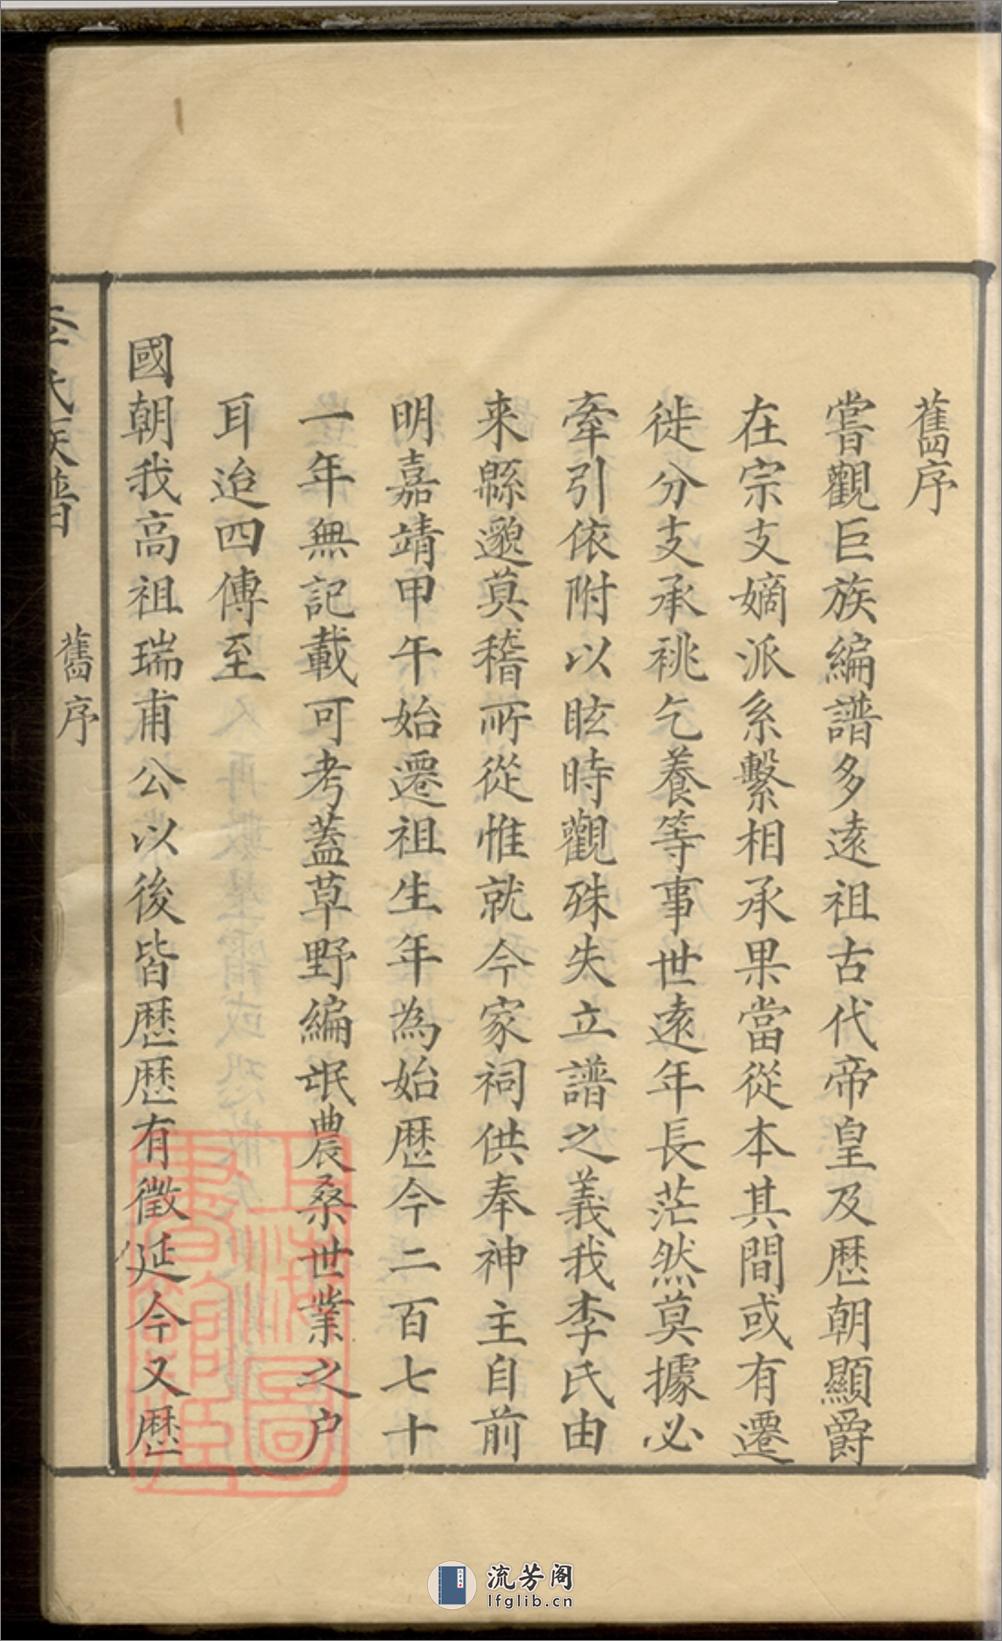 舊序
嘗觀巨族編譜多遠祖古代帝皇及歴朝顯爵
在宗支嫡派系繫相承果當從本其間或有遷
徙分支承祧乞養等事世遠年長茫然莫據必
牽引依附以眩時觀殊失立譜之義我李氏由
來緜邈莫稽所從惟就今家祠供奉神主自前
明嘉靖甲午始遷祖生年為始歴今二百七十
一年無記載可考蓋草野編氓農桑世業之户
耳迨四傳至
國朝我高祖瑞甫公以後皆歴歴有徵延今又歴
李氏族譜
舊序
上海圖書館藏
流芳阁
lfglib.cn